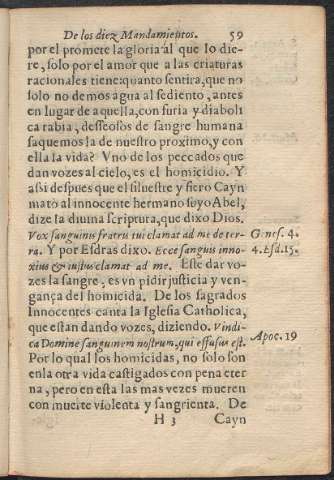 De los diez Mandamientos. 59
por el promete la gloria al que lo die-
re, solo por el amor que a las criaturas
racionales tiene: quanto sentira, que no
solo no demos agua al sediento, antes
en lugar de aquella, con furia y diaboli
ca rabia, desseosos de sangre humana
saquemos la de nuestro proximo, y con
ella la vida? Vno de los peccados que
dan vozes al cielo, es el homicidio. Y
assi despues que el siluestre y fiero Cayn
mato al innocente hermano suyo Abel,
dize la diuina scriptura, que dixo Dios.
Vox sanguinis fratris tui clamat ad me de ter- Genes. 4.
ra. Y por Esdras dixo. Ecce sanguis inno- 4. Esd. 15.
xius & iustus clamat ad me. Este dar vo-
zes la sangre, es vn pidir justicia y ven-
gança del homicida. De los sagrados
Innocentes canta la Iglesia Catholica,
que estan dando vozes, diziendo. Vindi-
ca Domine sanguinem nostrum, qui effusus est. Apoc. 19
Por lo qual los homicidas, no solo son
enla otra vida castigados con pena eter
na, pero en esta las mas vezes mueren
con muerte violenta y sangrienta. De
H 3 Cayn